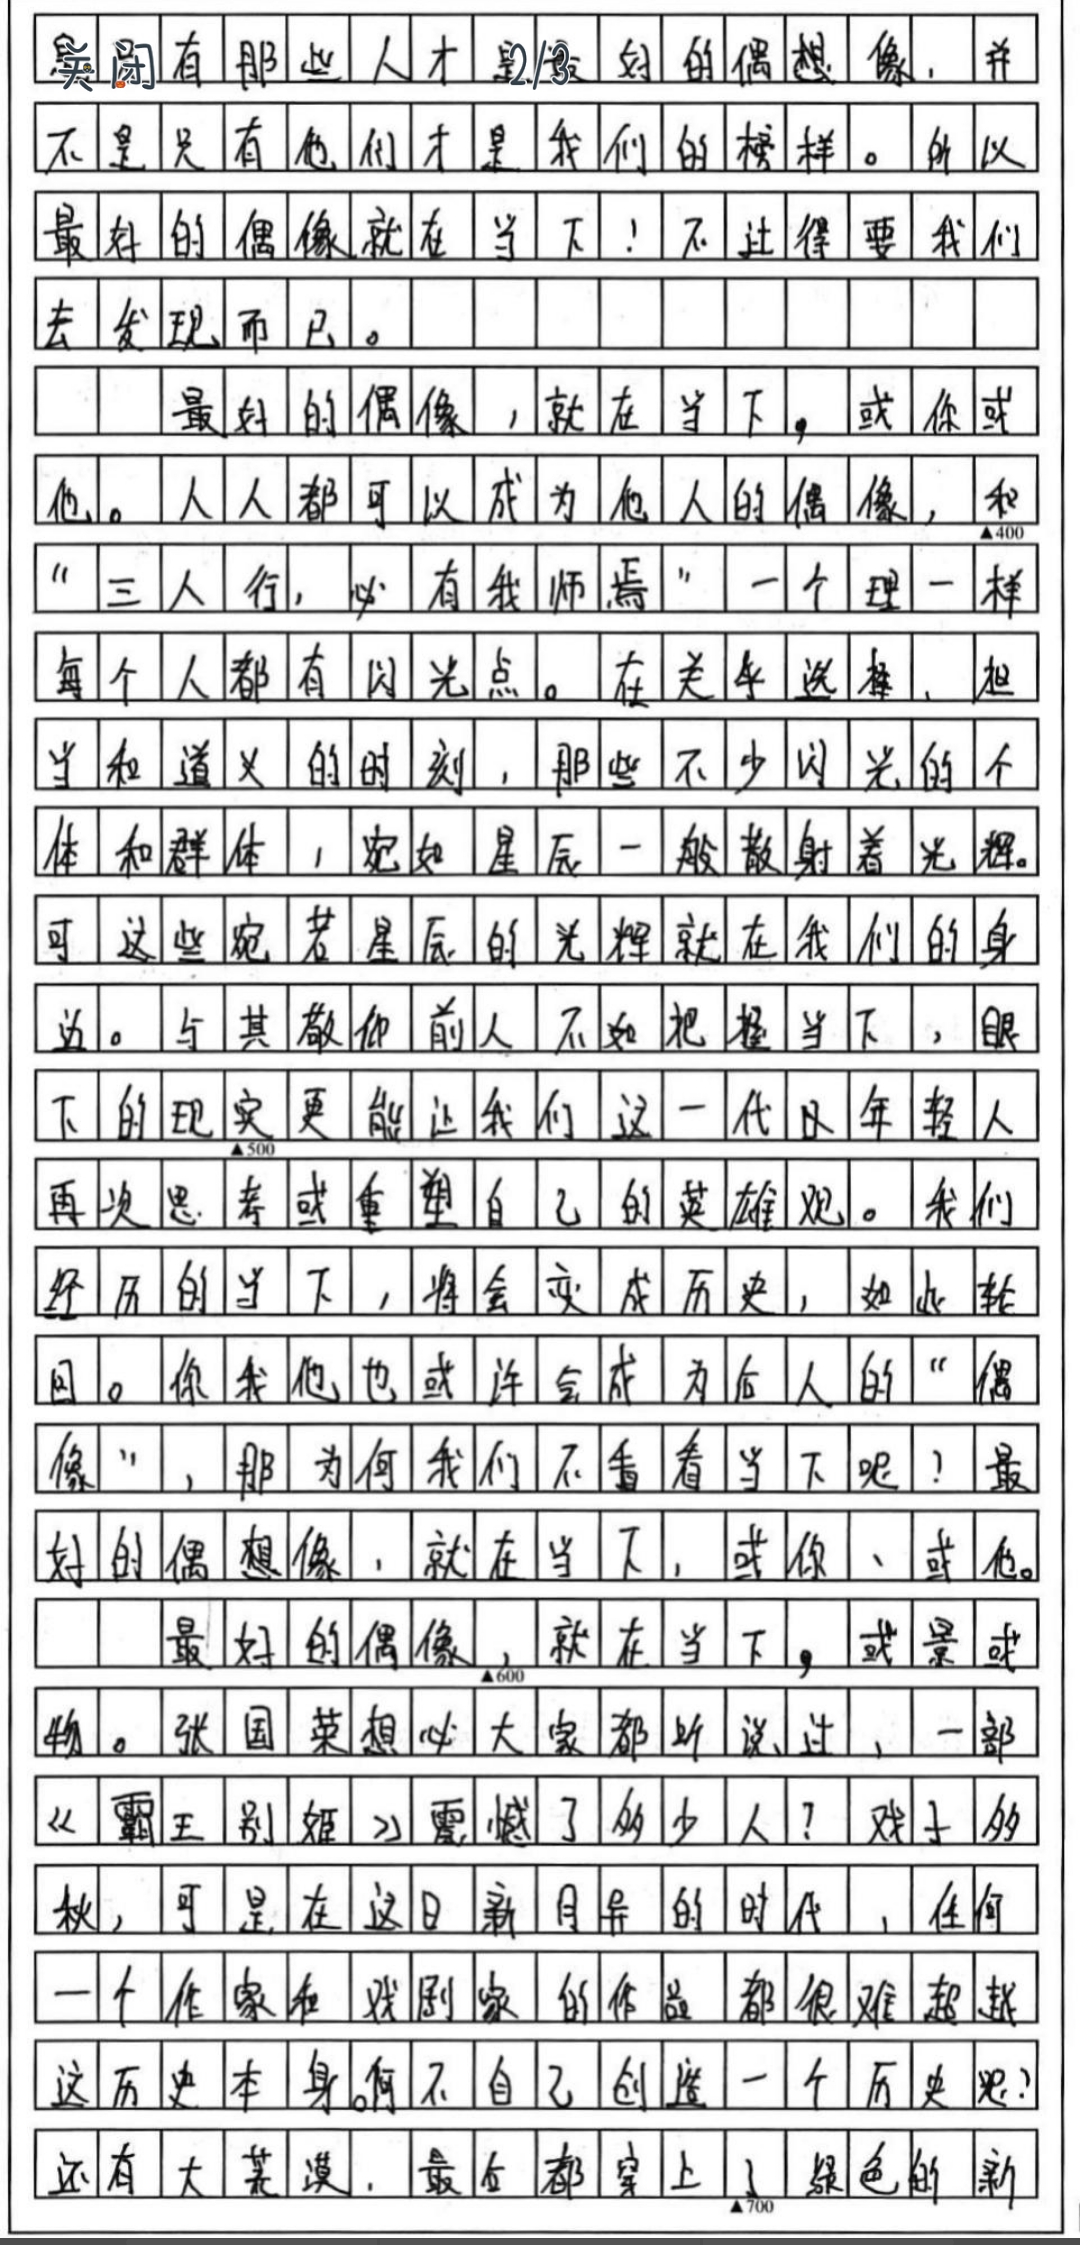 关闭有那些人才是2/3好的偶想像，并
不是只有他们才是我们的榜样。所以
最好的偶像就在当下！不过得要我们
去发现而已。
最好的偶像，就在当下，或你或
他。人人都可以成为他人的偶像，和
▲400
“三人行，必有我师焉”一个理一样
每个人都有闪光点。在关乎选择、担
当和道义的时刻，那些不少闪光的个
体和群体，宛如星辰一般散射着光辉。
可这些宛若星辰的光辉就在我们的身
边。与其敬仰前人不如把握当下，眼
下的现实更能让我们这一代年轻人
▲500
再次思考或重塑自己的英雄观。我们
经历的当下，将会变成历史，如此轮
回。你我他也或许会成为后人的“偶
像”，那为何我们不看看当下呢？最
好的偶想像，就在当下，或你、或他。
最好的偶像，就在当下，或景或
▲600
物。张国荣想必大家都听说过，一部
《霸王别姬》震憾了多少人？戏子多
秋，可是在这日新月异的时代，任何
一个作家和戏剧家的作品都很难超越
这历史本身。何不自己创造一个历史呢？
还有大荒漠，最后都穿上了绿色的新
▲700